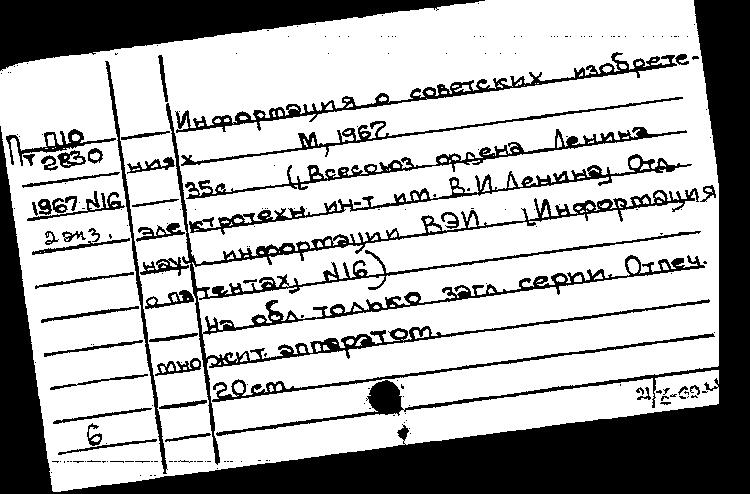 Информация о советских изобрете-
П П10
т 2830
ниях. М, 1967.
35с. (Всесоюз. ордена Ленина
1967 N16
2 экз.
электротехн. ин-т им. В.И. Ленина, Отд.
науч. информации ВЭИ. Информация
о патентах, N16)
На обл. только загл. серии. Отпеч.
множит. аппаратом.
20 см.
6